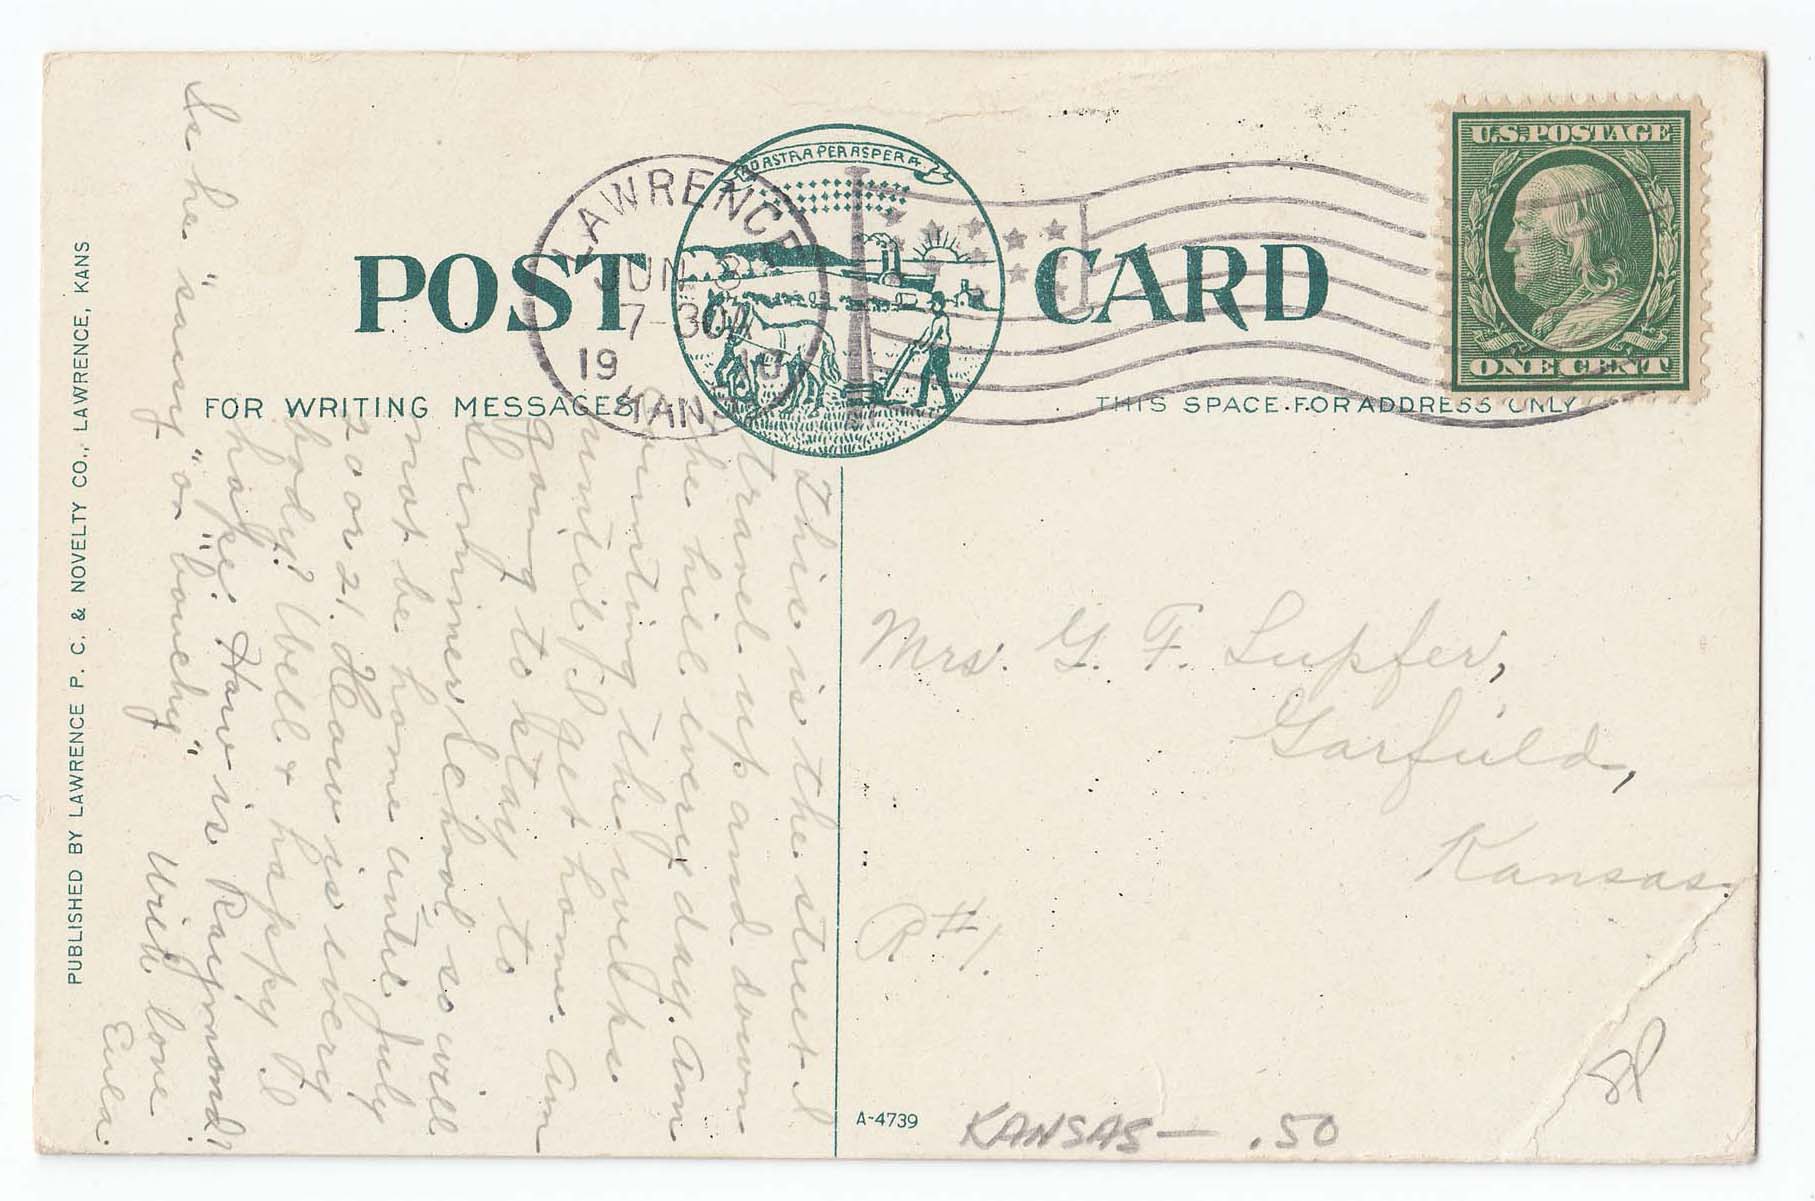 U.S. POSTAGE
ONE CENT
AD ASTRA PER ASPERA
LAWRENCE
JUN 8
7-30A
19 10
KANS.
POST CARD
FOR WRITING MESSAGES
THIS SPACE FOR ADDRESS ONLY
PUBLISHED BY LAWRENCE P. C. & NOVELTY CO., LAWRENCE, KANS
This is the street I
travel up and down
the hill every day. Am
counting the weeks
until I get home. Am
going to stay to
summer school so will
not be home until July
20 or 21. How is every
body? Well & happy I
hope. How is Raymond?
Is he "saucy" or "bouchy"
With love
Eula.
Mrs. G. F. Lupfer,
Garfield,
Kansas.
R #1.
A-4739
KANSAS — .50